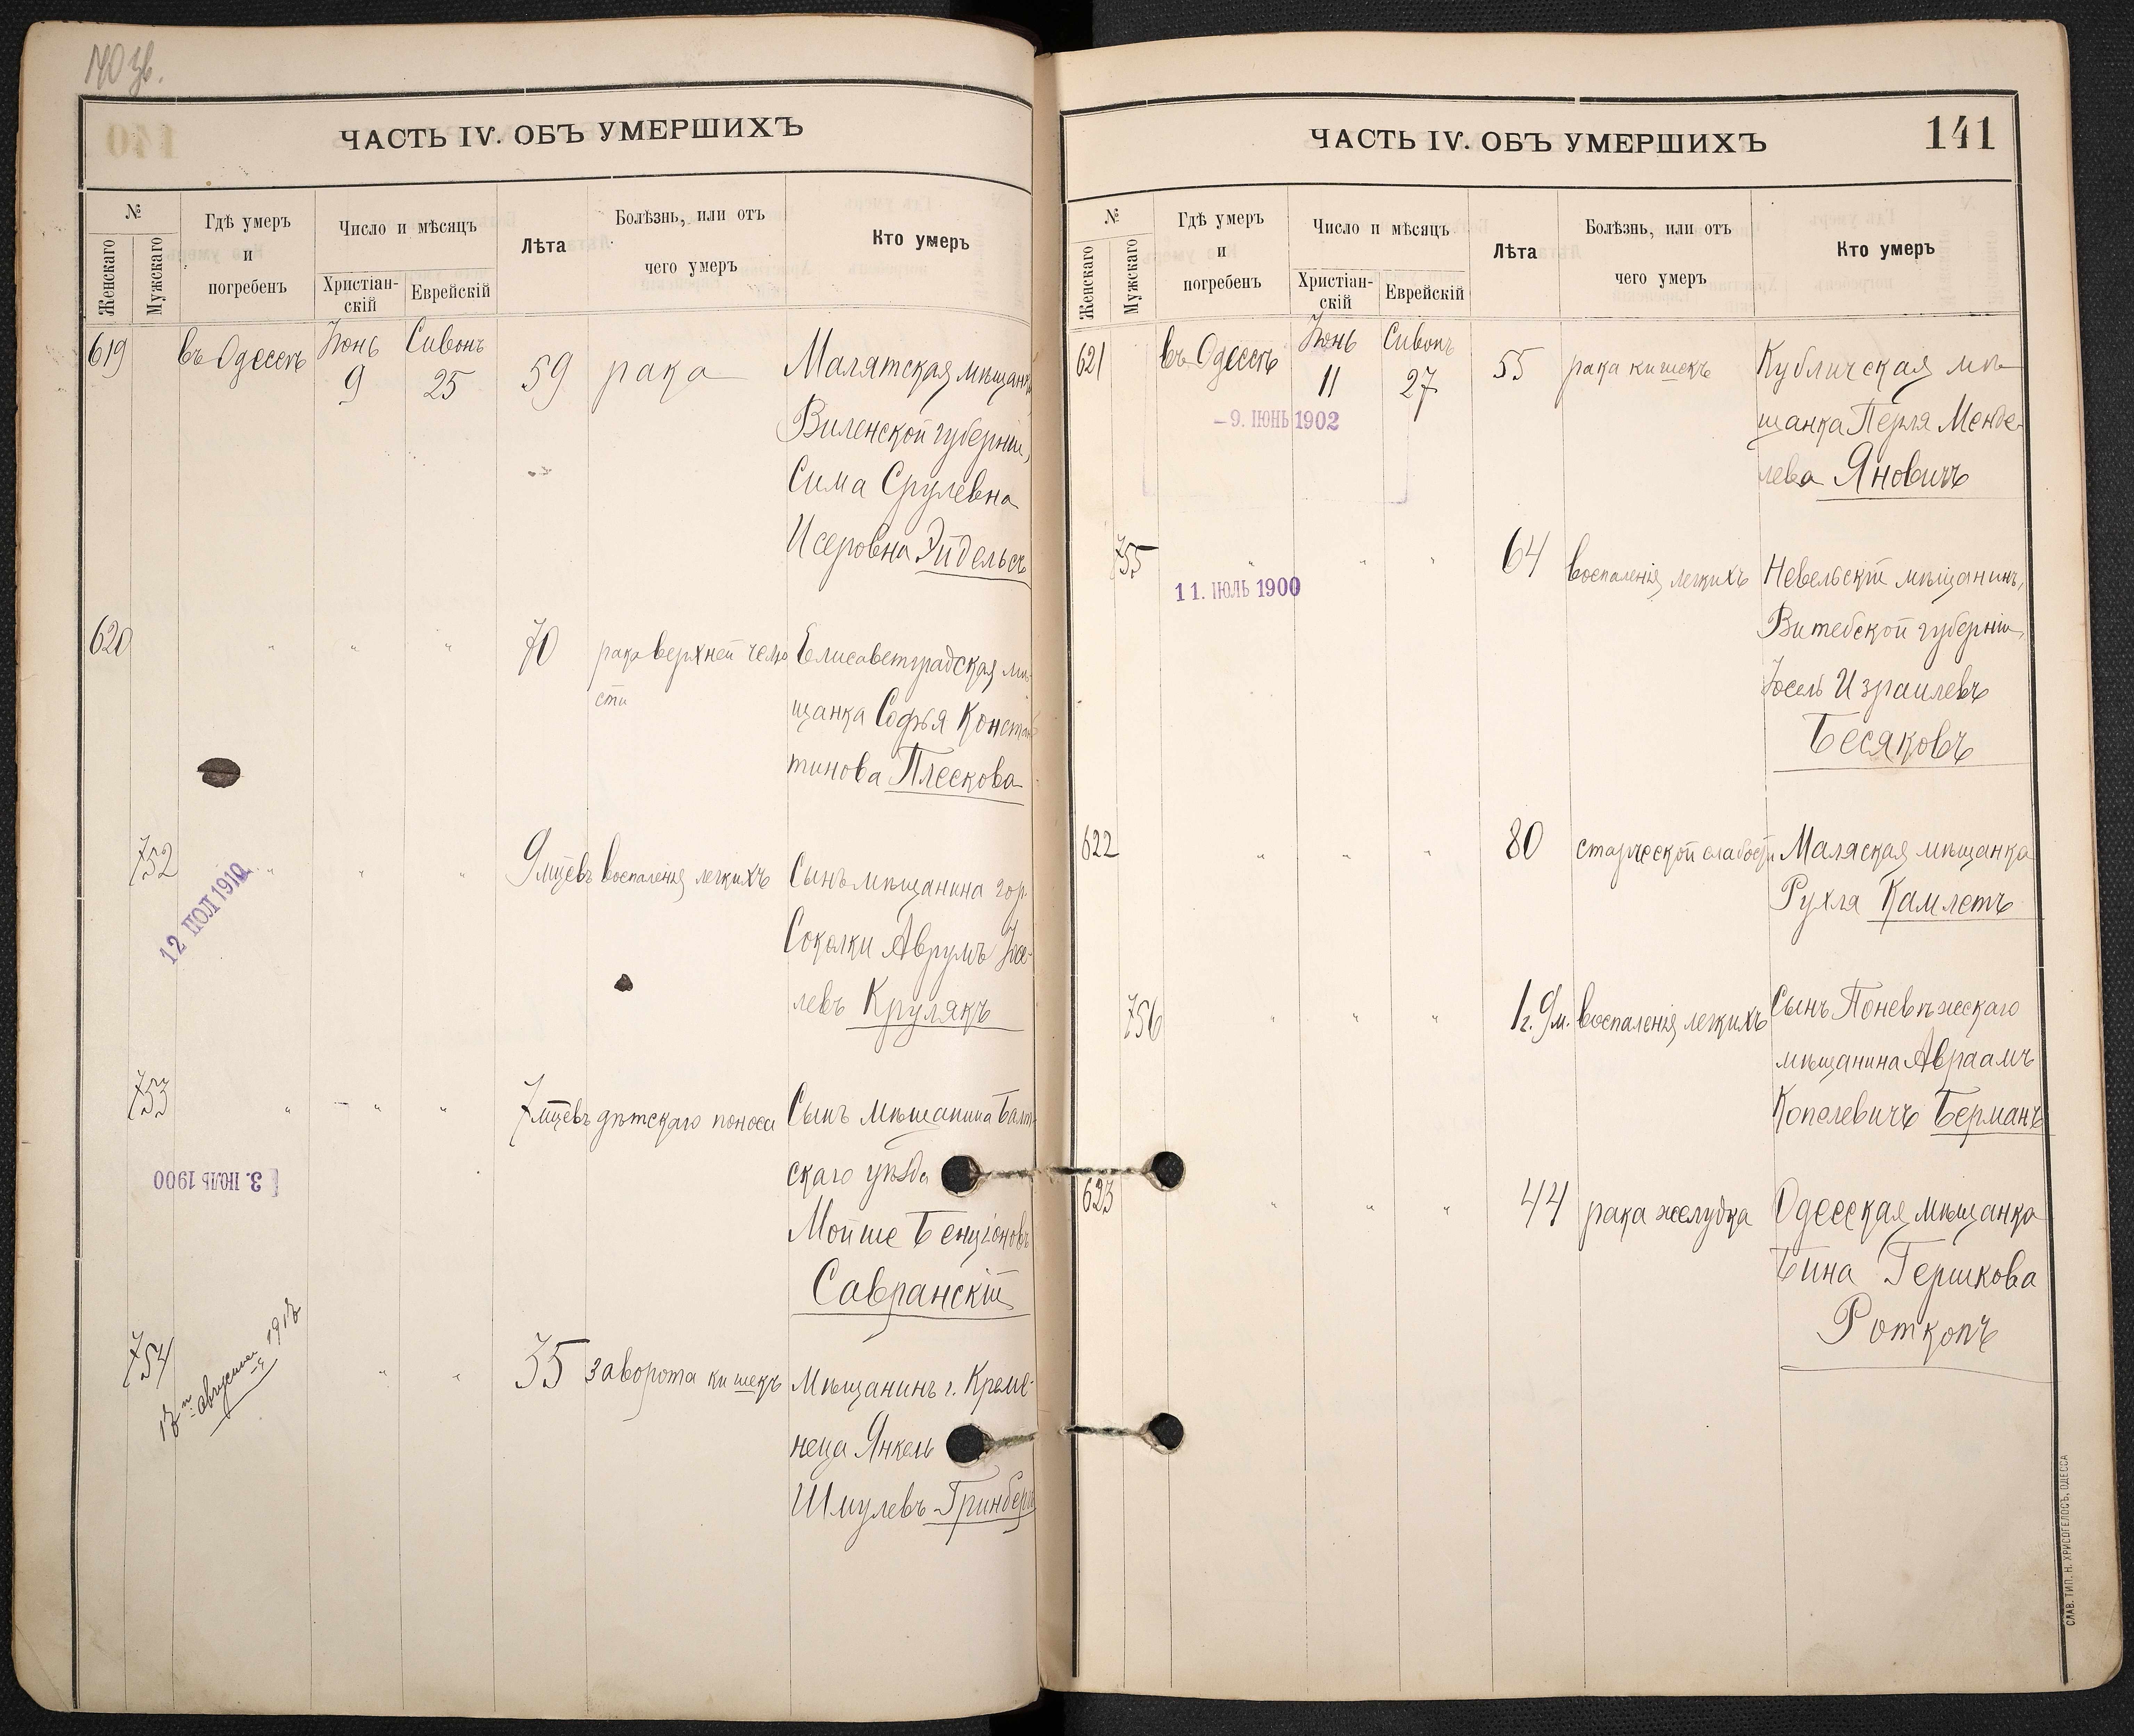 140 зв.
ЧАСТЬ IV. ОБЪ УМЕРШИХЪ
№
Женскаго
Мужскаго
Гдѣ умеръ
и
погребенъ
Число и мѣсяцъ
Христіан-
скій
Еврейскій
Лѣта
Болѣзнь, или отъ
чего умеръ
Кто умеръ
619 въ Одессѣ Іюнь 9 Сивонъ 25 59 рака Малятская мѣщанка
Виленской губерніи,
Сима Срулевна
Исеровна Эйдельсъ
620 " " " 70 рака верхней челю Елисаветградская мѣ-
сти
щанка Софья Констан
тинова Плескова
752 " " " 9 мцевъ воспаленія легкихъ Сынъ мѣщанина гор.
12 ІЮЛ 1910
Соколки Аврумъ Іосе-
левъ Крулякъ
753 " " " 7 мцевъ дѣтскаго поноса Сынъ мѣщанина Балт-
3. ІЮЛЬ 1900
скаго уѣзда
Мойше Бенціоновъ
Савранскій
754 " " 35 заворота кишекъ Мѣщанинъ г. Креме-
августа
неца Янкель
Шмулевъ Гринбергъ
ЧАСТЬ IV. ОБЪ УМЕРШИХЪ
141
№
Женскаго
Мужскаго
Гдѣ умеръ
и
погребенъ
Число и мѣсяцъ
Христіан-
скій
Еврейскій
Лѣта
Болѣзнь, или отъ
чего умеръ
Кто умеръ
621 въ Одессѣ Іюнь 11 Сивонъ 27 55 рака кишекъ Кубличская мѣ-
-9. ІЮНЬ 1902
щанка Перля Менде-
лева Яновичъ
755 " " " 64 воспаленія легкихъ Невельскій мѣщанинъ,
11. ІЮЛЬ 1900
Витебской губерніи,
Іосель Израилевъ
Бесяковъ
622 " " " 80 старческой слабости Маляская мѣщанка
Рухля Камлетъ
756 " " " 1 г. 9 м. воспаленія легкихъ Сынъ Поневѣжскаго
мѣщанина Авраамъ
Копелевичъ Берманъ
623 " " " 44 рака желудка Одесская мѣщанка
Бина Гершкова
Роткопъ
СЛАВ. ТИП. Н. ХРИСОГЕЛОСЪ, ОДЕССА